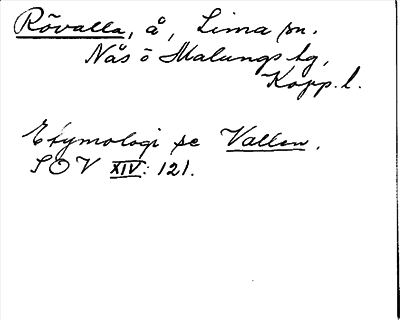 Rövalla, å, Lima sn.
Nås o Malungs tg,
Kopp. l.
Etymologi se Vallen.
SOV XIV: 121.